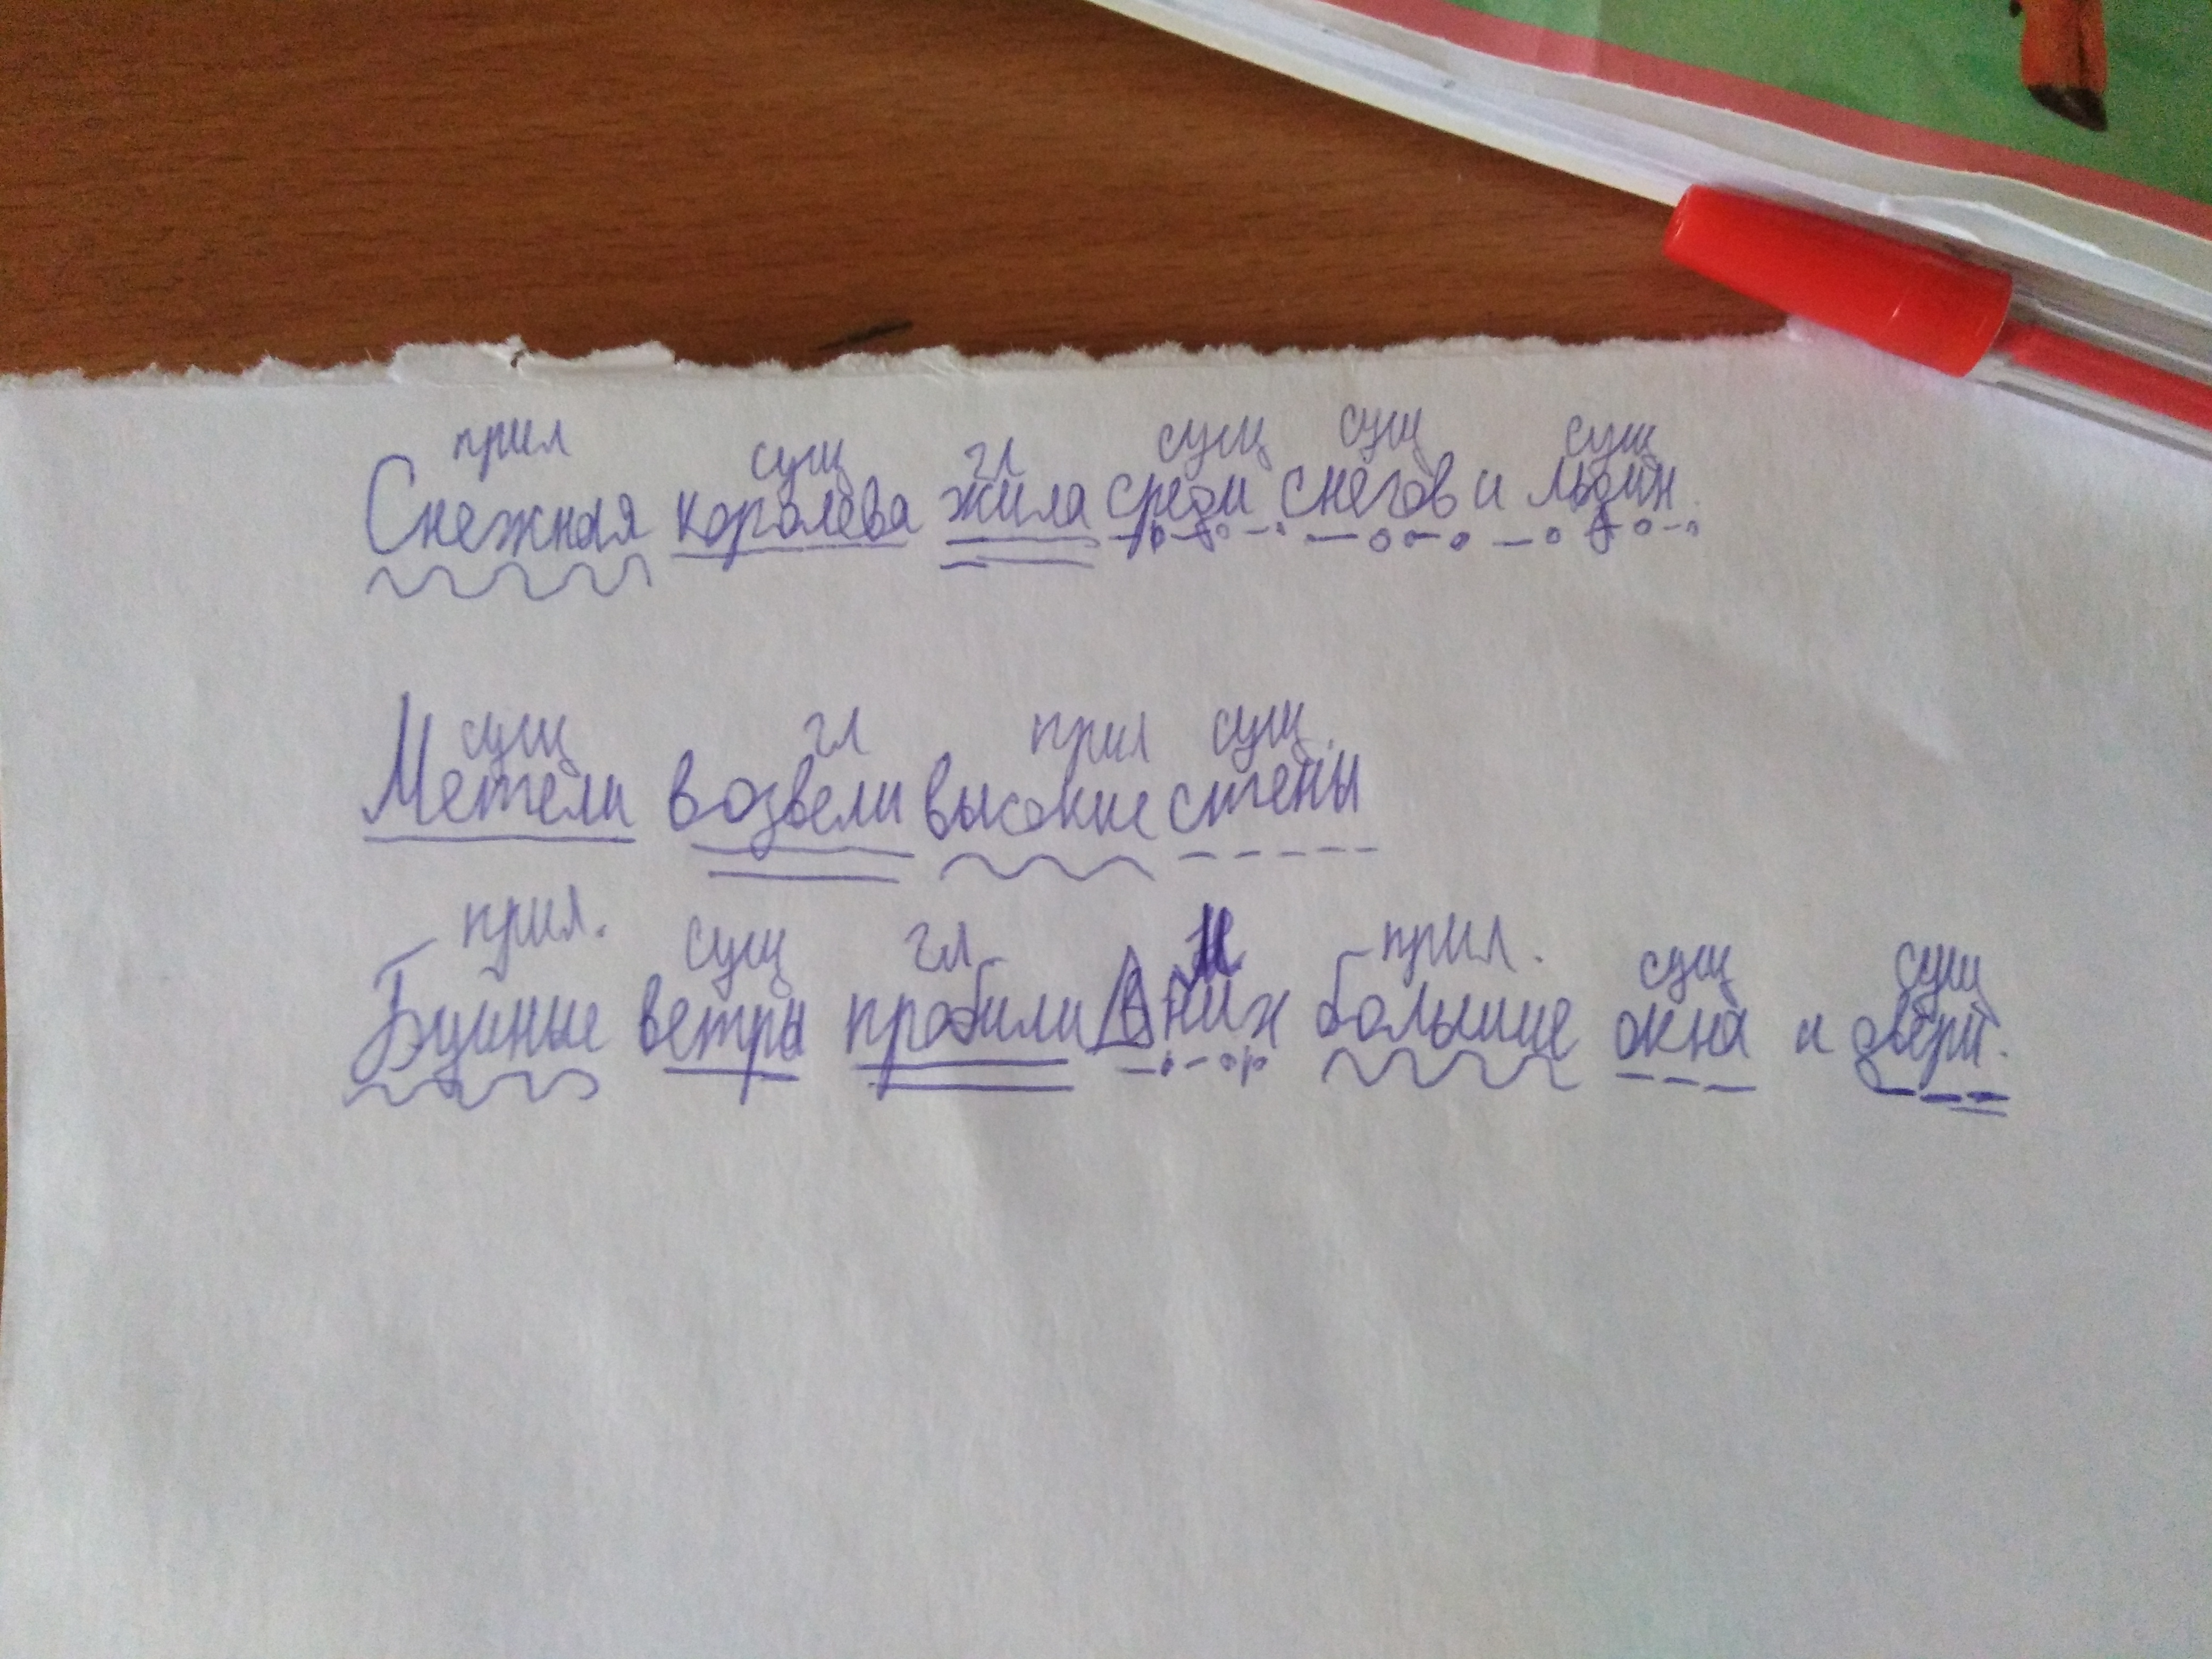 прил сущ гл сущ сущ сущ
Снежная королева жила среди снегов и льдин.
сущ гл прил сущ.
Метели возвели высокие стены
прил. сущ гл М прил. сущ сущ
Буйные ветры пробили в них большие окна и двери.